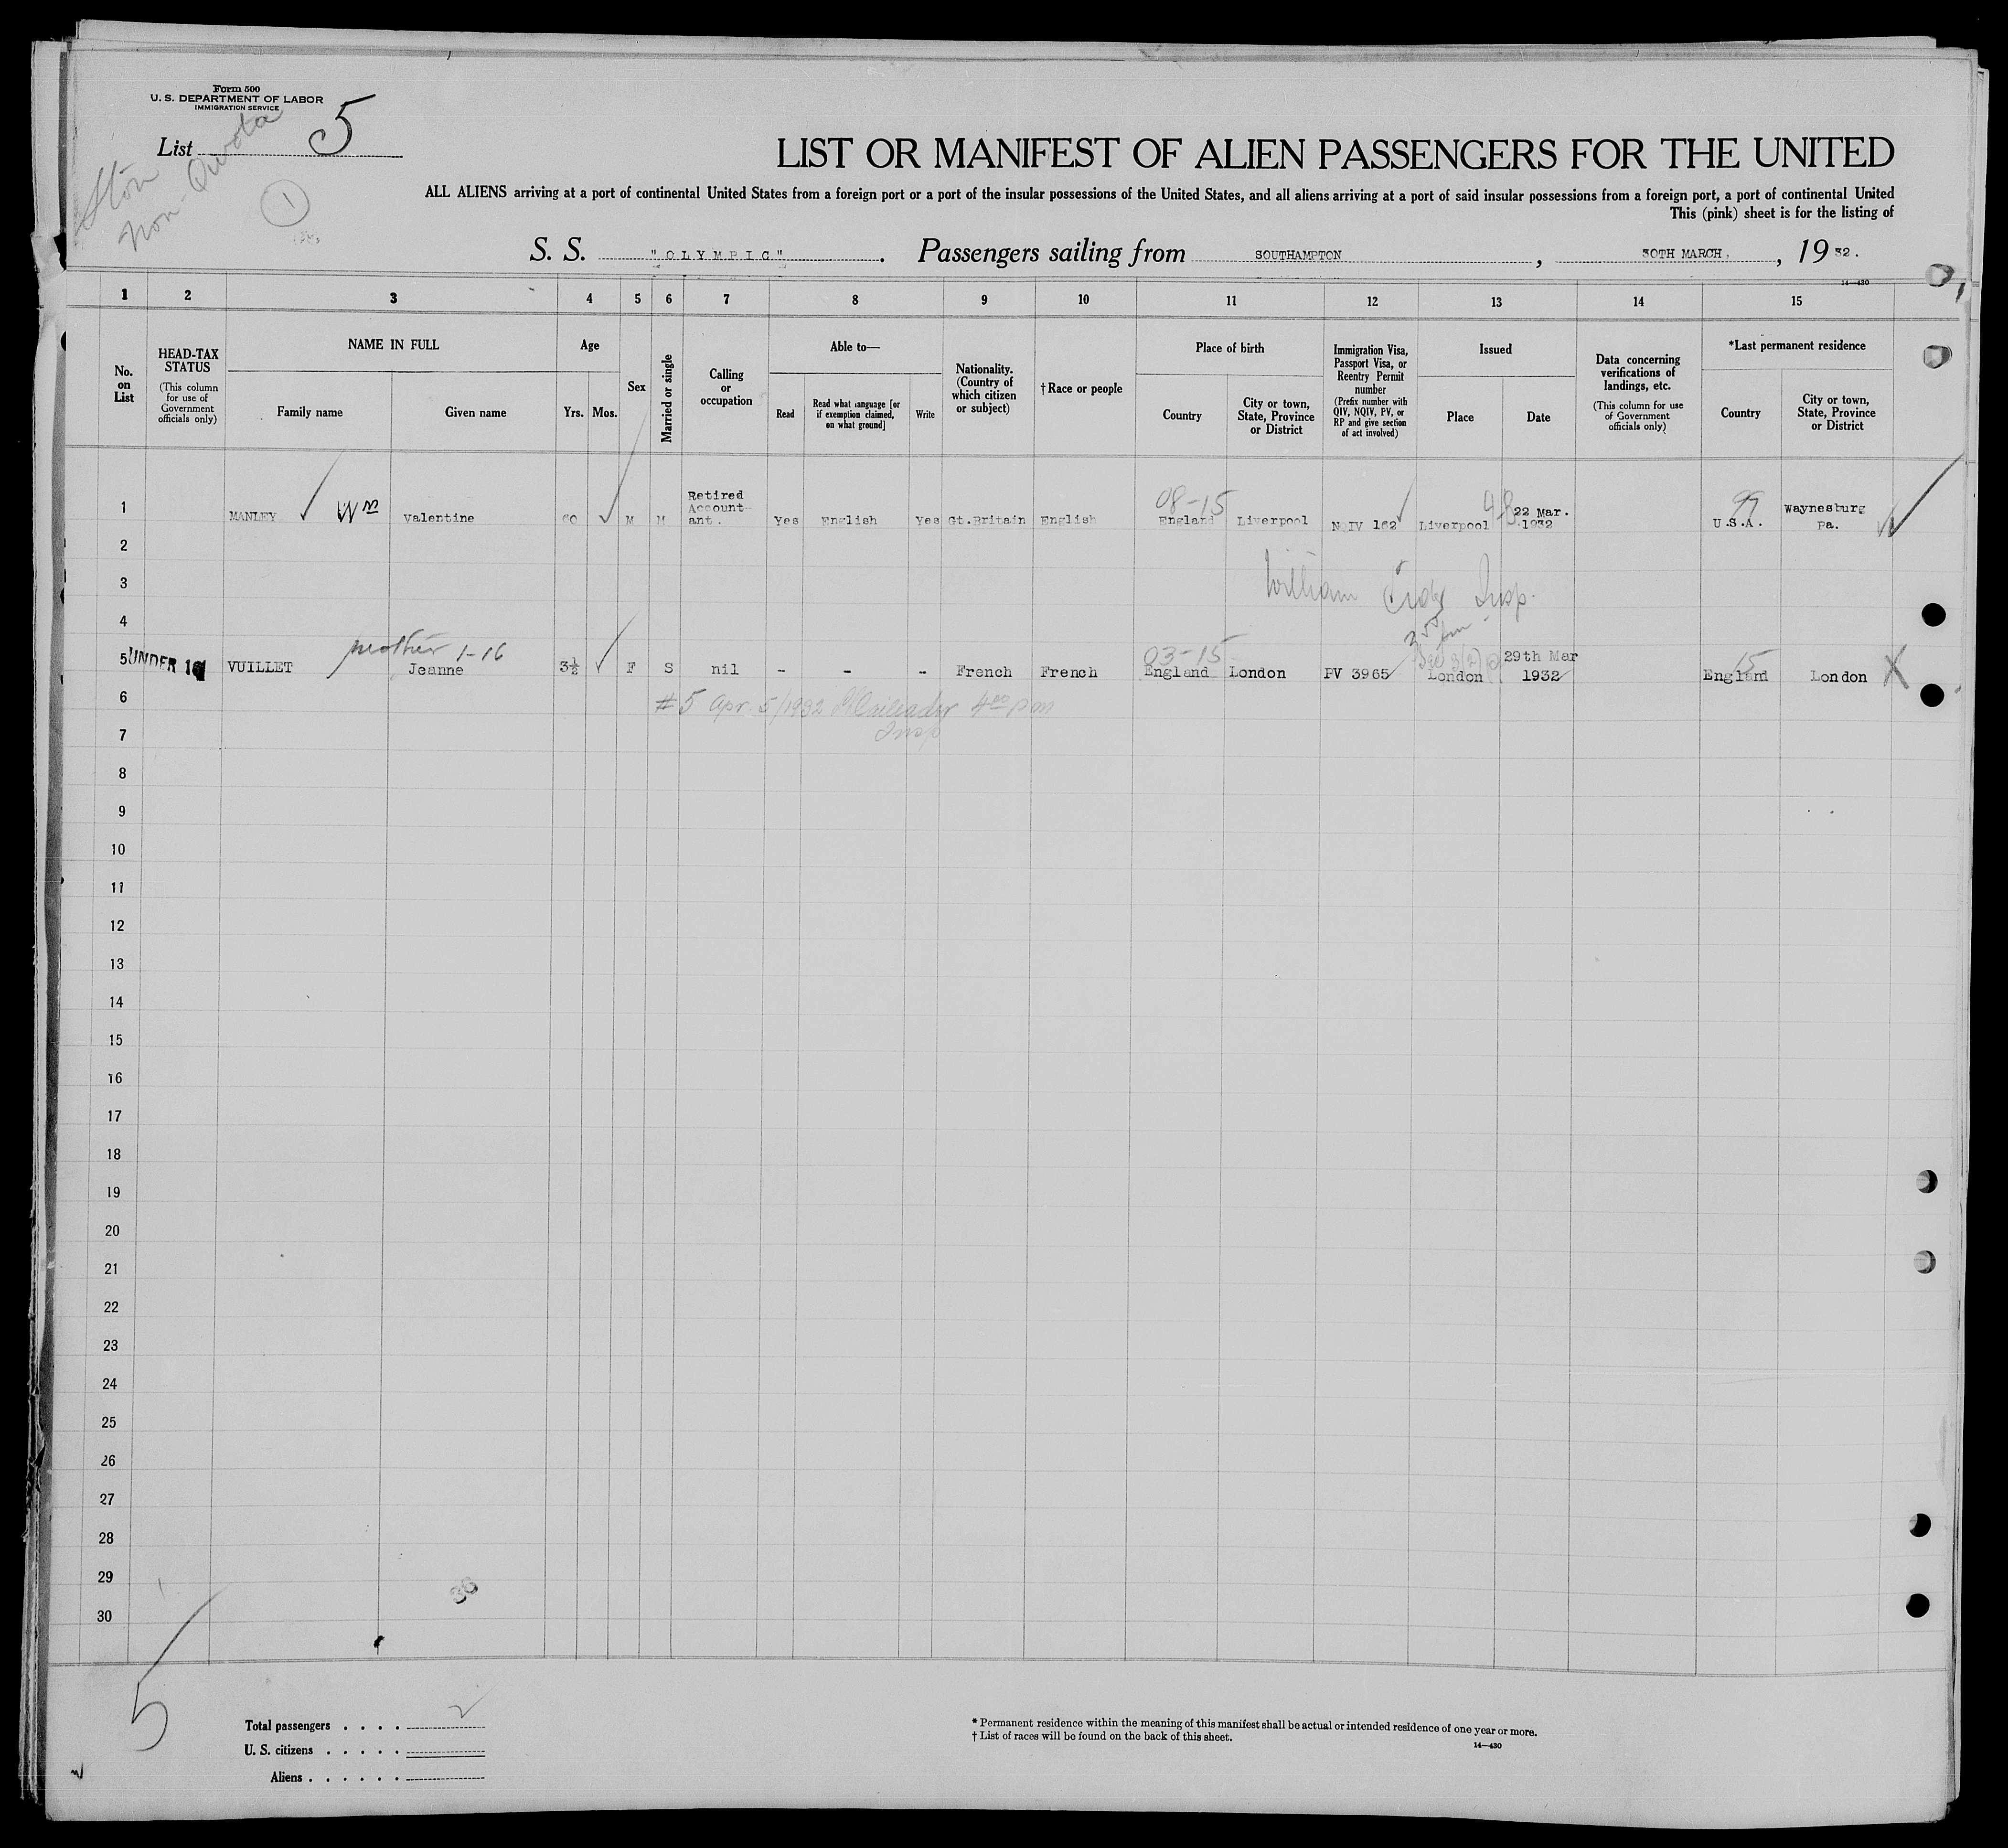 Form 500
U. S. DEPARTMENT OF LABOR
IMMIGRATION SERVICE
List 5
Non-Quota
1
LIST OR MANIFEST OF ALIEN PASSENGERS FOR THE UNITED
ALL ALIENS arriving at a port of continental United States from a foreign port or a port of the insular possessions of the United States, and all aliens arriving at a port of said insular possessions from a foreign port, a port of continental United
This (pink) sheet is for the listing of
S. S. "OLYMPIC". Passengers sailing from SOUTHAMPTON, 30TH MARCH, 1932.
14—430
1 2 3 4 5 6 7 8 9 10 11 12 13 14 15
No. on List
HEAD-TAX STATUS (This column for use of Government officials only)
NAME IN FULL
Family name
Given name
Age
Yrs.
Mos.
Sex
Married or single
Calling or occupation
Able to—
Read
Read what language [or if exemption claimed, on what ground]
Write
Nationality. (Country of which citizen or subject)
†Race or people
Place of birth
Country
City or town, State, Province or District
Immigration Visa, Passport Visa, or Reentry Permit number (Prefix number with QIV, NQIV, PV, or RP and give section of act involved)
Issued
Place
Date
Data concerning verifications of landings, etc. (This column for use of Government officials only)
*Last permanent residence
Country
City or town, State, Province or District
08-15
99
1 MANLEY Wm Valentine 60 M M Retired Account-ant. Yes English Yes Gt.Britain English England Liverpool N IV 162 Liverpool 22 Mar. 1932 U.S.A. Waynesburg Pa.
2
William Insp.
3
4
mother 1-16
03-15
15
5 UNDER 16 VUILLET Jeanne 3½ F S nil - - - French French England London PV 3965 London 29th Mar 1932 England London
6
#5 Apr 5/1932 4 00 pm
Insp
7
8
9
10
11
12
13
14
15
16
17
18
19
20
21
22
23
24
25
26
27
28
29
36
30
5
Total passengers . . . . 2
U. S. citizens . . . . .
Aliens . . . . . .
* Permanent residence within the meaning of this manifest shall be actual or intended residence of one year or more.
† List of races will be found on the back of this sheet.
14—430